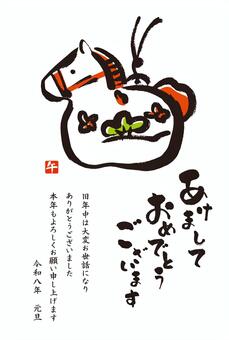 午
あけまして
おめでとう
ございます
旧年中は大変お世話になり
ありがとうございました
本年もよろしくお願い申し上げます
令和八年 元旦